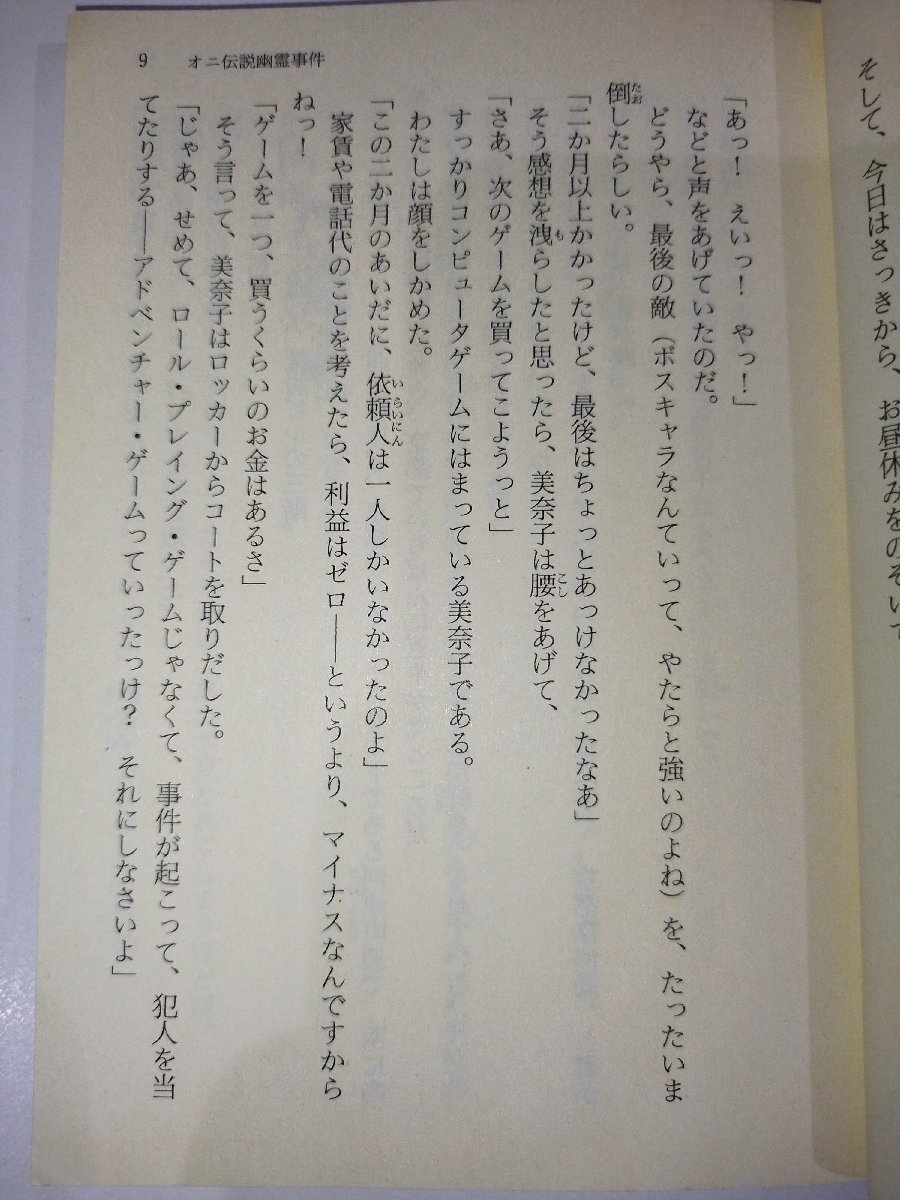 そして、今日はさっきから、お昼休みをのぞいて
9 オニ伝説幽霊事件
「あっ! えいっ! やっ!」
などと声をあげていたのだ。
どうやら、最後の敵(ボスキャラなんていって、やたらと強いのよね)を、たったいま
倒したらしい。
「二か月以上かかったけど、最後はちょっとあっけなかったなあ」
そう感想を洩らしたと思ったら、美奈子は腰をあげて、
「さあ、次のゲームを買ってこようっと」
すっかりコンピュータゲームにはまっている美奈子である。
わたしは顔をしかめた。
「この二か月のあいだに、依頼人は一人しかいなかったのよ」
家賃や電話代のことを考えたら、利益はゼロ――というより、マイナスなんですから
ねっ!
「ゲームを一つ、買うくらいのお金はあるさ」
そう言って、美奈子はロッカーからコートを取りだした。
「じゃあ、せめて、ロール・プレイング・ゲームじゃなくて、事件が起こって、犯人を当
てたりする――アドベンチャー・ゲームっていったっけ? それにしなさいよ」